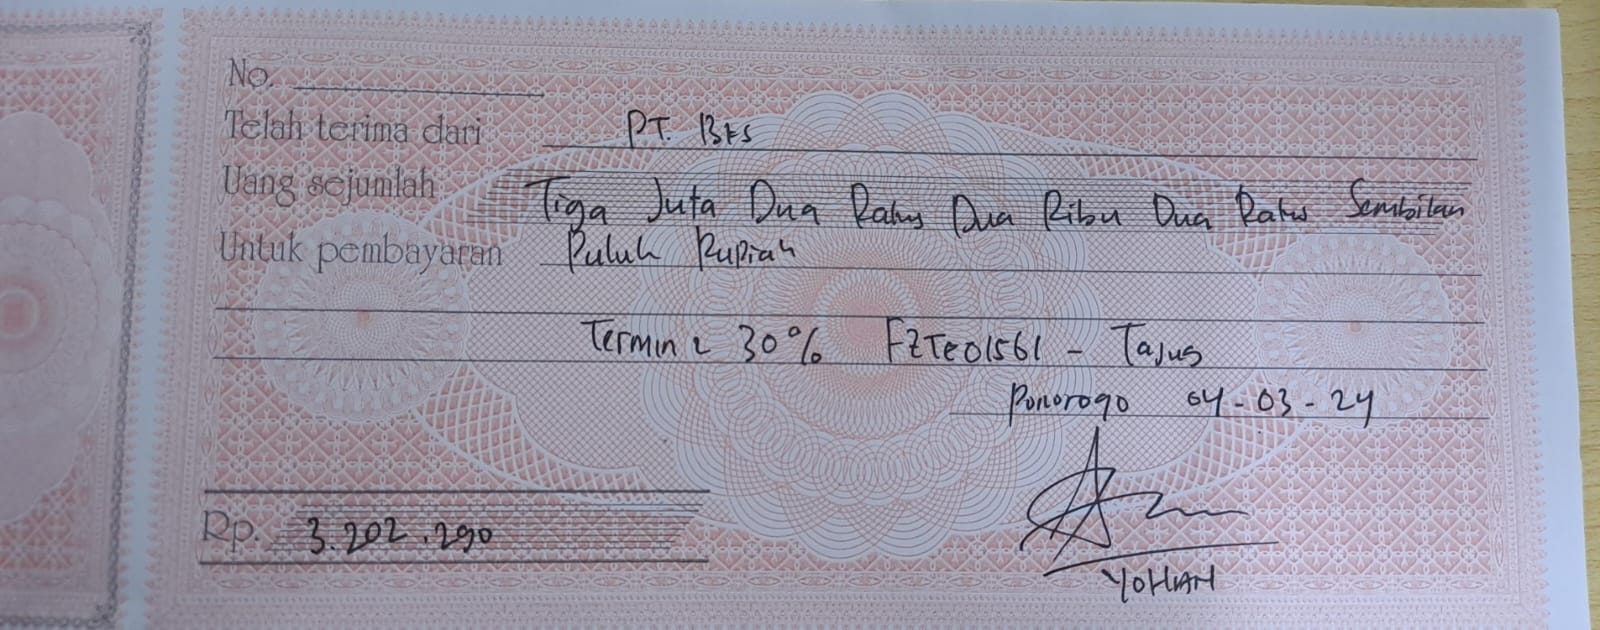 No.
Telah terima dari PT. BKS
Uang sejumlah Tiga Juta Dua Ratus Dua Ribu Dua Ratus Sembilan
Untuk pembayaran Puluh Rupiah
Termin 2 30% FZTE01561 - Tajug
Ponorogo 04-03-24
Rp. 3.202.290
YOHAN